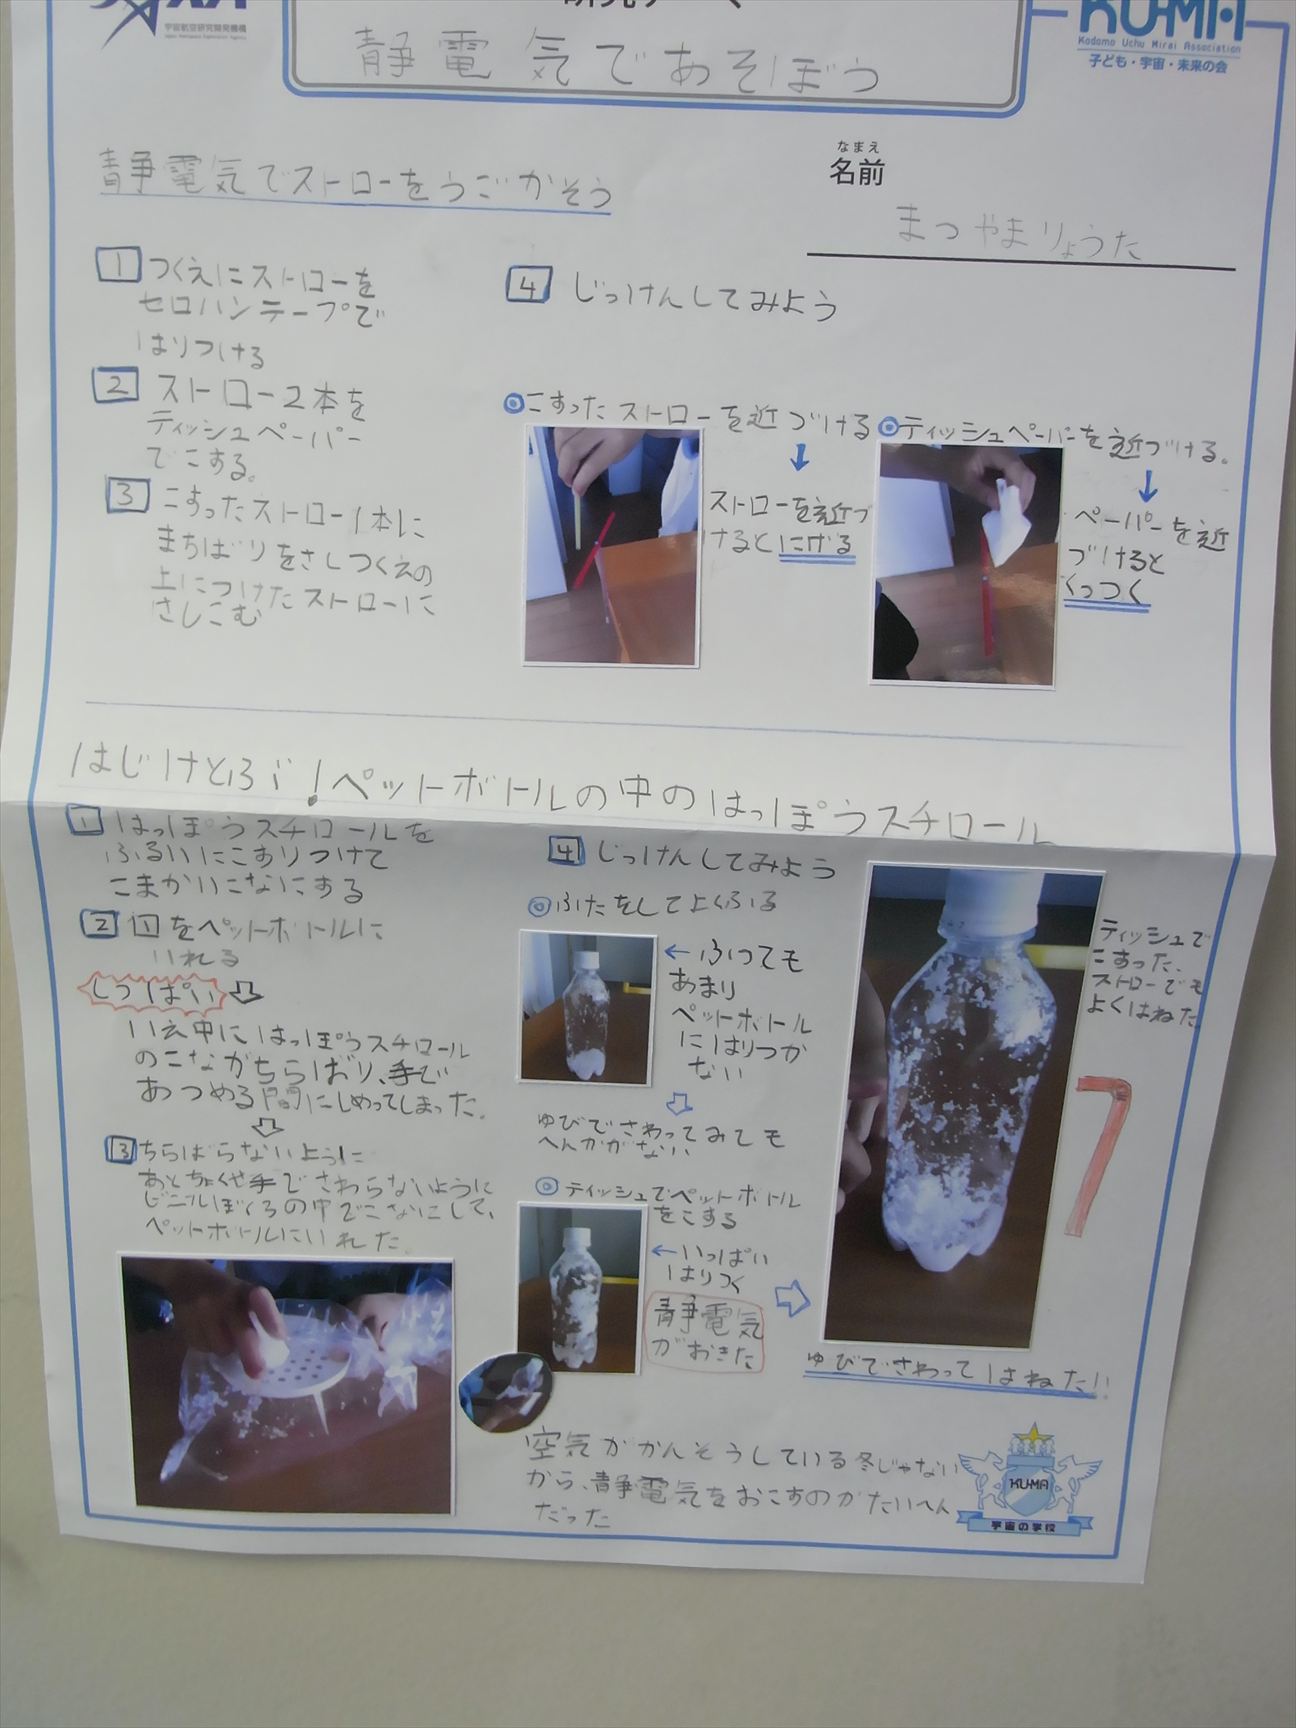 宇宙航空研究開発機構
Japan Aerospace Exploration Agency
静電気であそぼう
KU-MA
Kodomo Uchu Mirai Association
子ども・宇宙・未来の会
静電気でストローをうごかそう
なまえ
名前
まつやまりょうた
1 つくえにストローを
セロハンテープで
はりつける
2 ストロー2本を
ティッシュペーパー
でこする。
3 こすったストロー1本に
まちばりをさしつくえの
上につけたストローに
さしこむ
4 じっけんしてみよう
◎こすったストローを近づける
↓
ストローを近づ
けるとにげる
◎ティッシュペーパーを近づける。
↓
ペーパーを近
づけると
くっつく
はじけとぶ!ペットボトルの中のはっぽうスチロール
1 はっぽうスチロールを
ふるいにこすりつけて
こまかいこなにする
2 1をペットボトルに
いれる
しっぱい
いえ中にはっぽうスチロール
のこながちらばり、手で
あつめる間にしめってしまった。
3 ちらばらないように
あとちょくせつ手でさわらないように
ビニールぶくろの中でこなにして、
ペットボトルにいれた。
4 じっけんしてみよう
◎ふたをしてよくふる
←ふっても
あまり
ペットボトル
にはりつか
ない
ゆびでさわってみても
へんかがない
◎ティッシュでペットボトル
をこする
←いっぱい
はりつく
静電気
がおきた
ティッシュで
こすった
ストローでも
よくはねた
ゆびでさわってはねた!!
空気がかんそうしている冬じゃない
から、静電気をおこすのがたいへん
だった
KU-MA
宇宙の学校